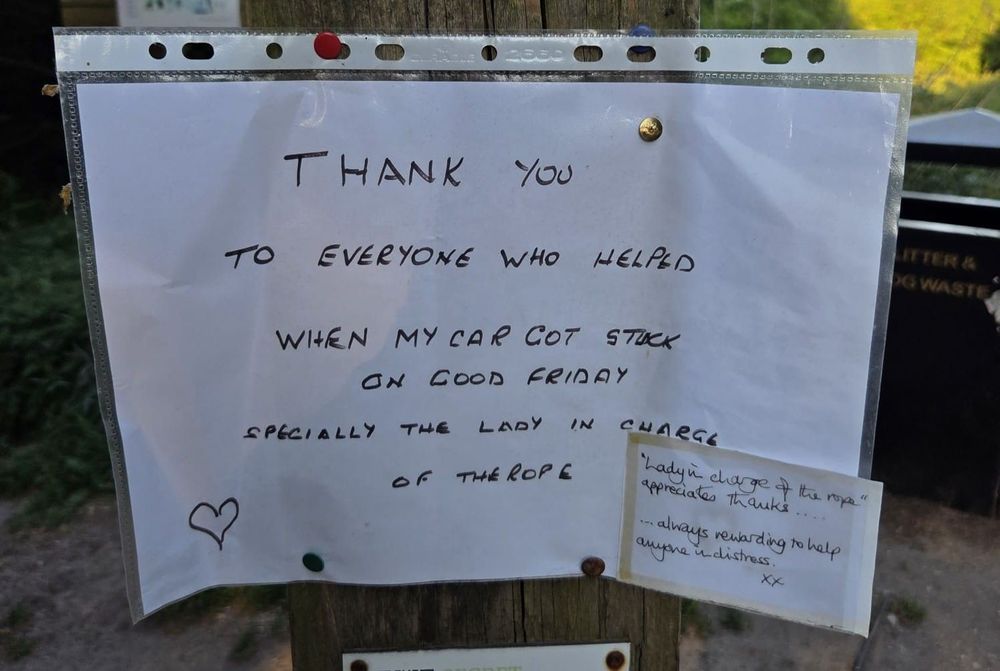 THANK YOU
TO EVERYONE WHO HELPED
WHEN MY CAR GOT STUCK
ON GOOD FRIDAY
SPECIALLY THE LADY IN CHARGE
OF THE ROPE
"Lady in charge of the rope"
appreciates thanks.....
...always rewarding to help
anyone in distress.
xx
LITTER &
DOG WASTE